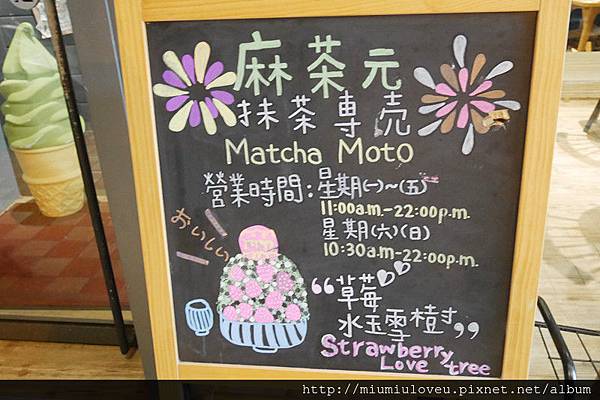 麻茶元
抹茶專売
Matcha Moto
營業時間：星期㈠~㈤
11:00a.m.-22:00p.m.
星期㈥㈰
10:30a.m-22:00p.m.
おいしい
“草莓
水玉雪樹”
Strawberry
Love tree
http://miumiuloveu.pixnet.net/album